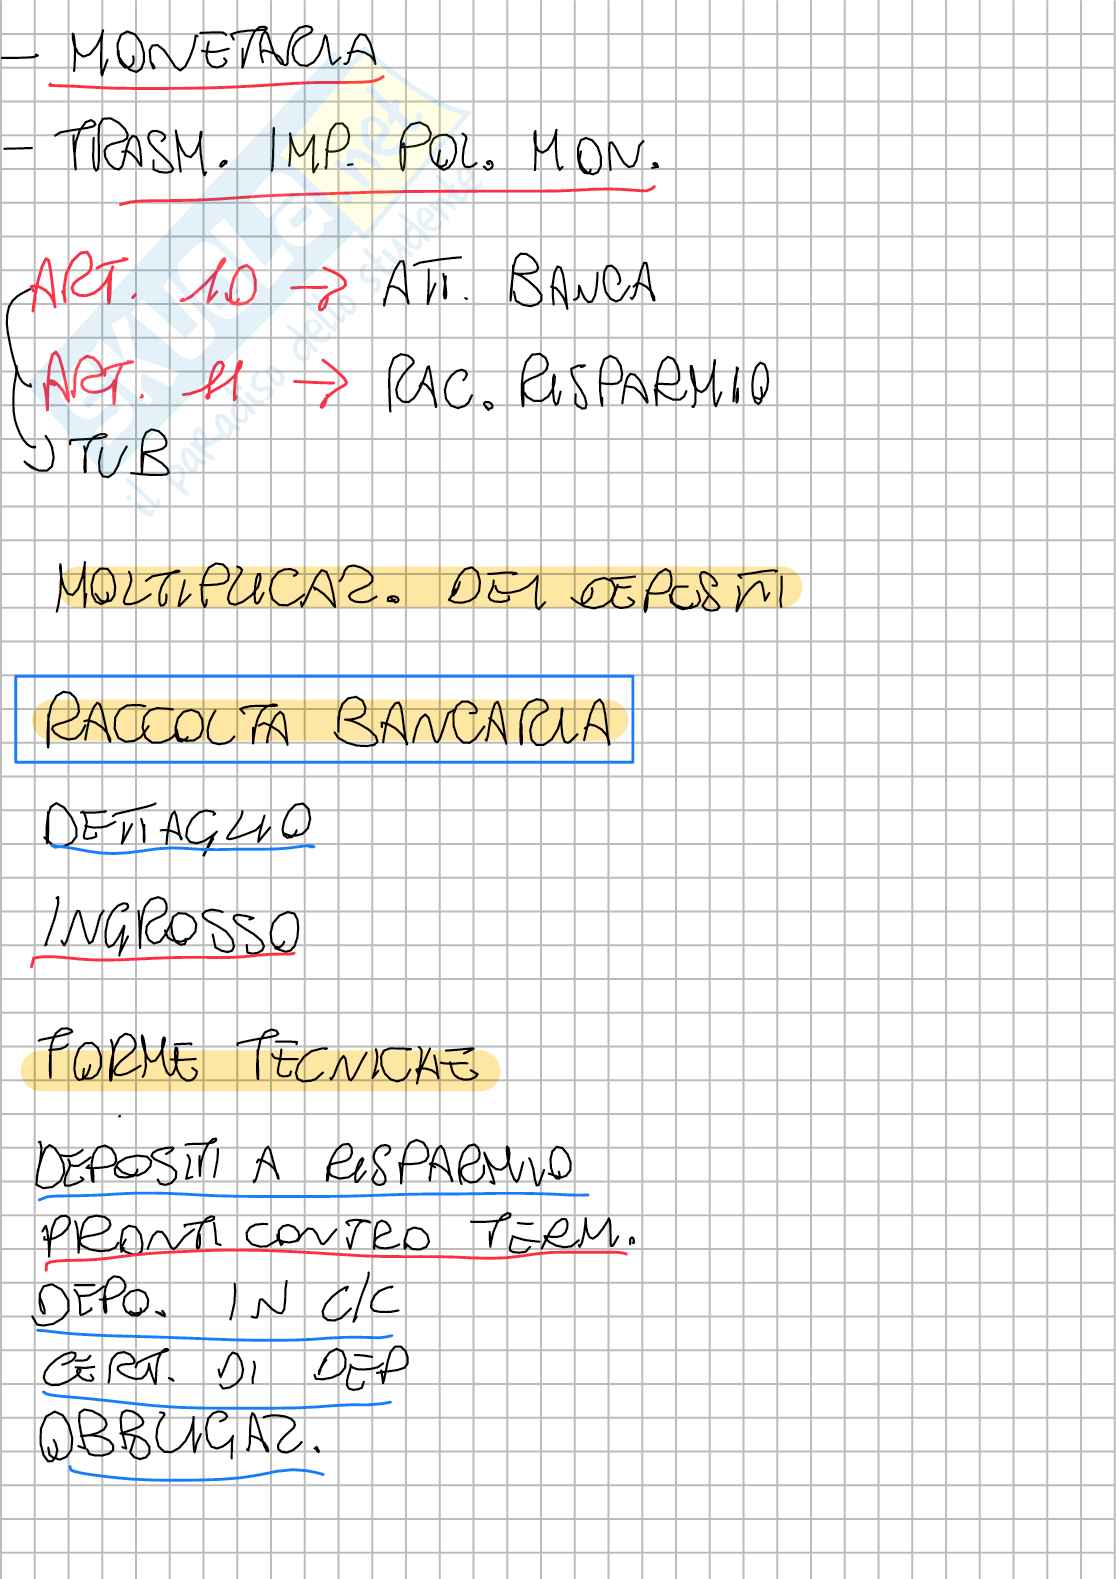 - MONETARIA
- TRASM. IMP. POL. MON.
ART. 10 → ATT. BANCA
ART. 11 → RAC. RISPARMIO
TUB
MOLTIPLICAZ. DEI DEPOSITI
RACCOLTA BANCARIA
DETTAGLIO
INGROSSO
FORME TECNICHE
DEPOSITI A RISPARMIO
PRONTI CONTRO TERM.
DEPO. IN C/C
CERT. DI DEP
OBBLIGAZ.
SKUOLA.net
il paradiso dello studente